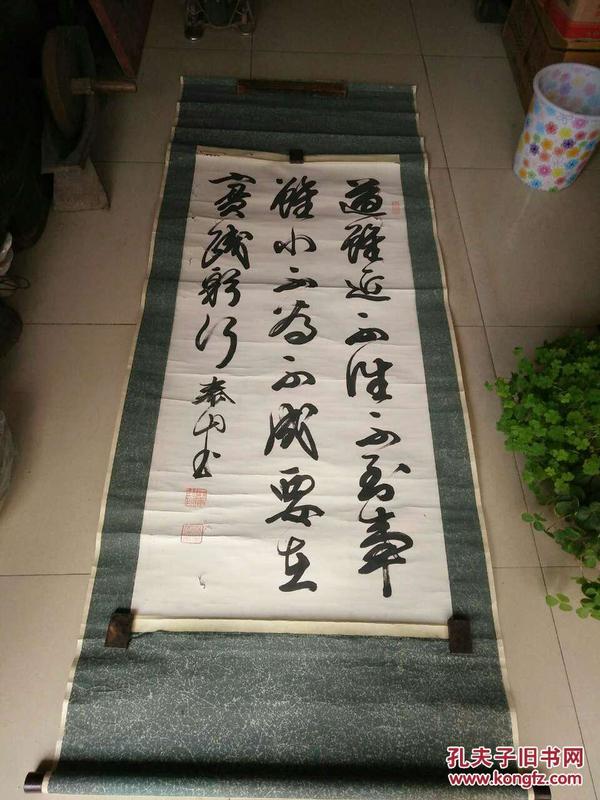 道雖近不往不到事
雖小不為不成要在
實踐躬行
泰山书
孔夫子旧书网
www.kongfz.com